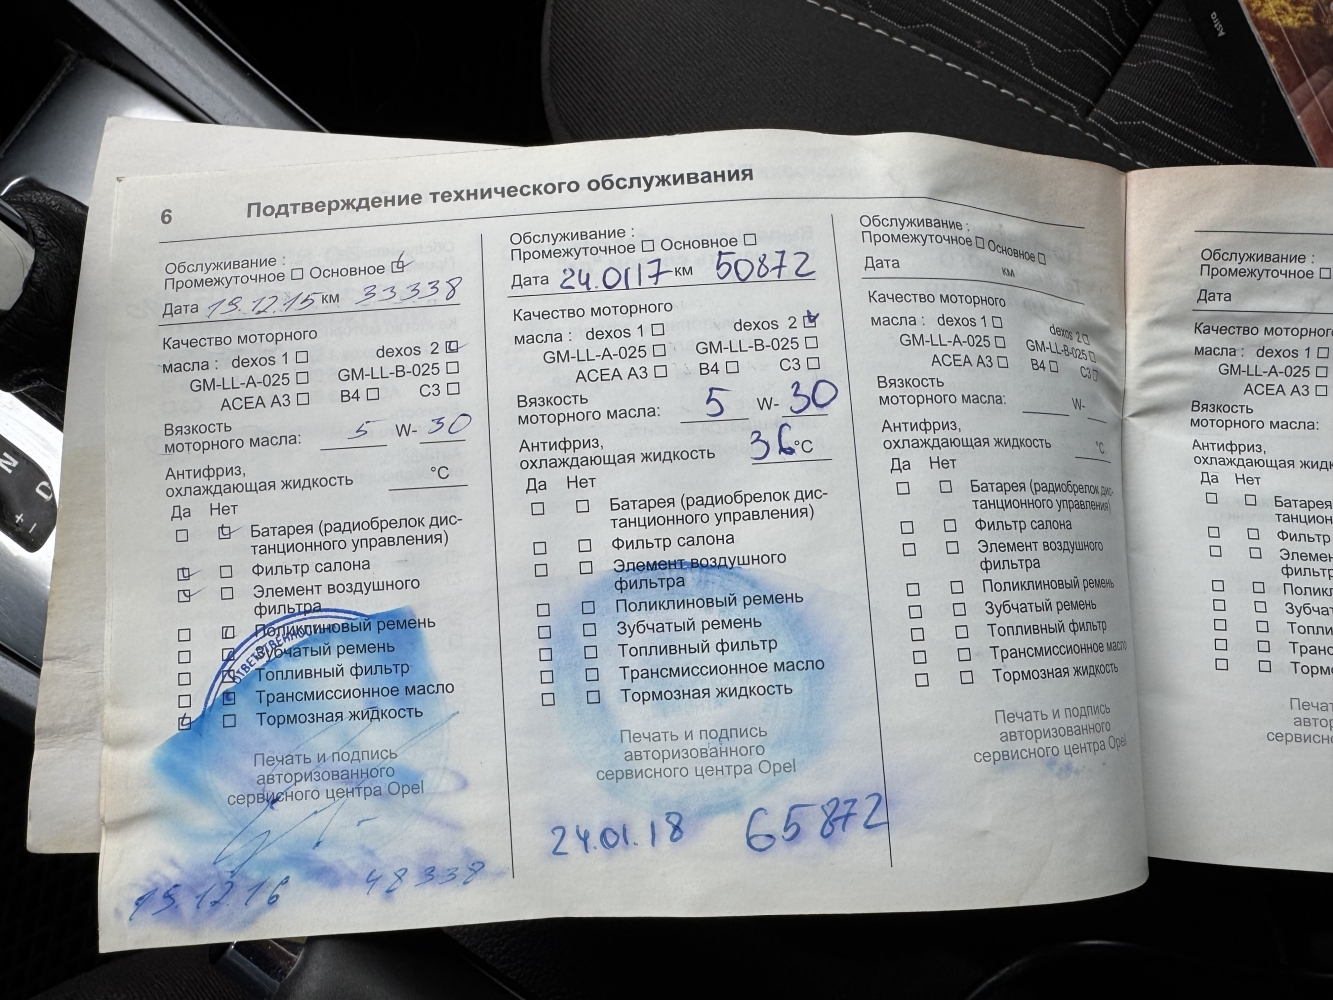 Astra
6 Подтверждение технического обслуживания
Обслуживание :
Промежуточное □ Основное □
Дата 19.12.15 км 33338
Качество моторного
масла : dexos 1 □ dexos 2 □
GM-LL-A-025 □ GM-LL-B-025 □
ACEA A3 □ B4 □ C3 □
Вязкость
моторного масла: 5 W- 30
Антифриз,
охлаждающая жидкость °C
Да Нет
□ □ Батарея (радиобрелок дис-
танционного управления)
□ □ Фильтр салона
□ □ Элемент воздушного
фильтра
□ □ Поликлиновый ремень
□ □ Зубчатый ремень
□ □ Топливный фильтр
□ □ Трансмиссионное масло
□ □ Тормозная жидкость
Печать и подпись
авторизованного
сервисного центра Opel
19.12.16 48338
Обслуживание :
Промежуточное □ Основное □
Дата 24.0117 км 50872
Качество моторного
масла : dexos 1 □ dexos 2 □
GM-LL-A-025 □ GM-LL-B-025 □
ACEA A3 □ B4 □ C3 □
Вязкость
моторного масла: 5 W- 30
Антифриз,
охлаждающая жидкость 36 °C
Да Нет
□ □ Батарея (радиобрелок дис-
танционного управления)
□ □ Фильтр салона
□ □ Элемент воздушного
фильтра
□ □ Поликлиновый ремень
□ □ Зубчатый ремень
□ □ Топливный фильтр
□ □ Трансмиссионное масло
□ □ Тормозная жидкость
Печать и подпись
авторизованного
сервисного центра Opel
24.01.18 65872
Обслуживание :
Промежуточное □ Основное □
Дата км
Качество моторного
масла : dexos 1 □ dexos 2 □
GM-LL-A-025 □ GM-LL-B-025 □
ACEA A3 □ B4 □ C3 □
Вязкость
моторного масла: W-
Антифриз,
охлаждающая жидкость °C
Да Нет
□ □ Батарея (радиобрелок дис-
танционного управления)
□ □ Фильтр салона
□ □ Элемент воздушного
фильтра
□ □ Поликлиновый ремень
□ □ Зубчатый ремень
□ □ Топливный фильтр
□ □ Трансмиссионное масло
□ □ Тормозная жидкость
Печать и подпись
авторизованного
сервисного центра Opel
Обслуживание :
Промежуточное □
Дата
Качество моторного
масла : dexos 1 □
GM-LL-A-025 □
ACEA A3 □
Вязкость
моторного масла:
Антифриз,
охлаждающая жидкость
Да Нет
N
D
+